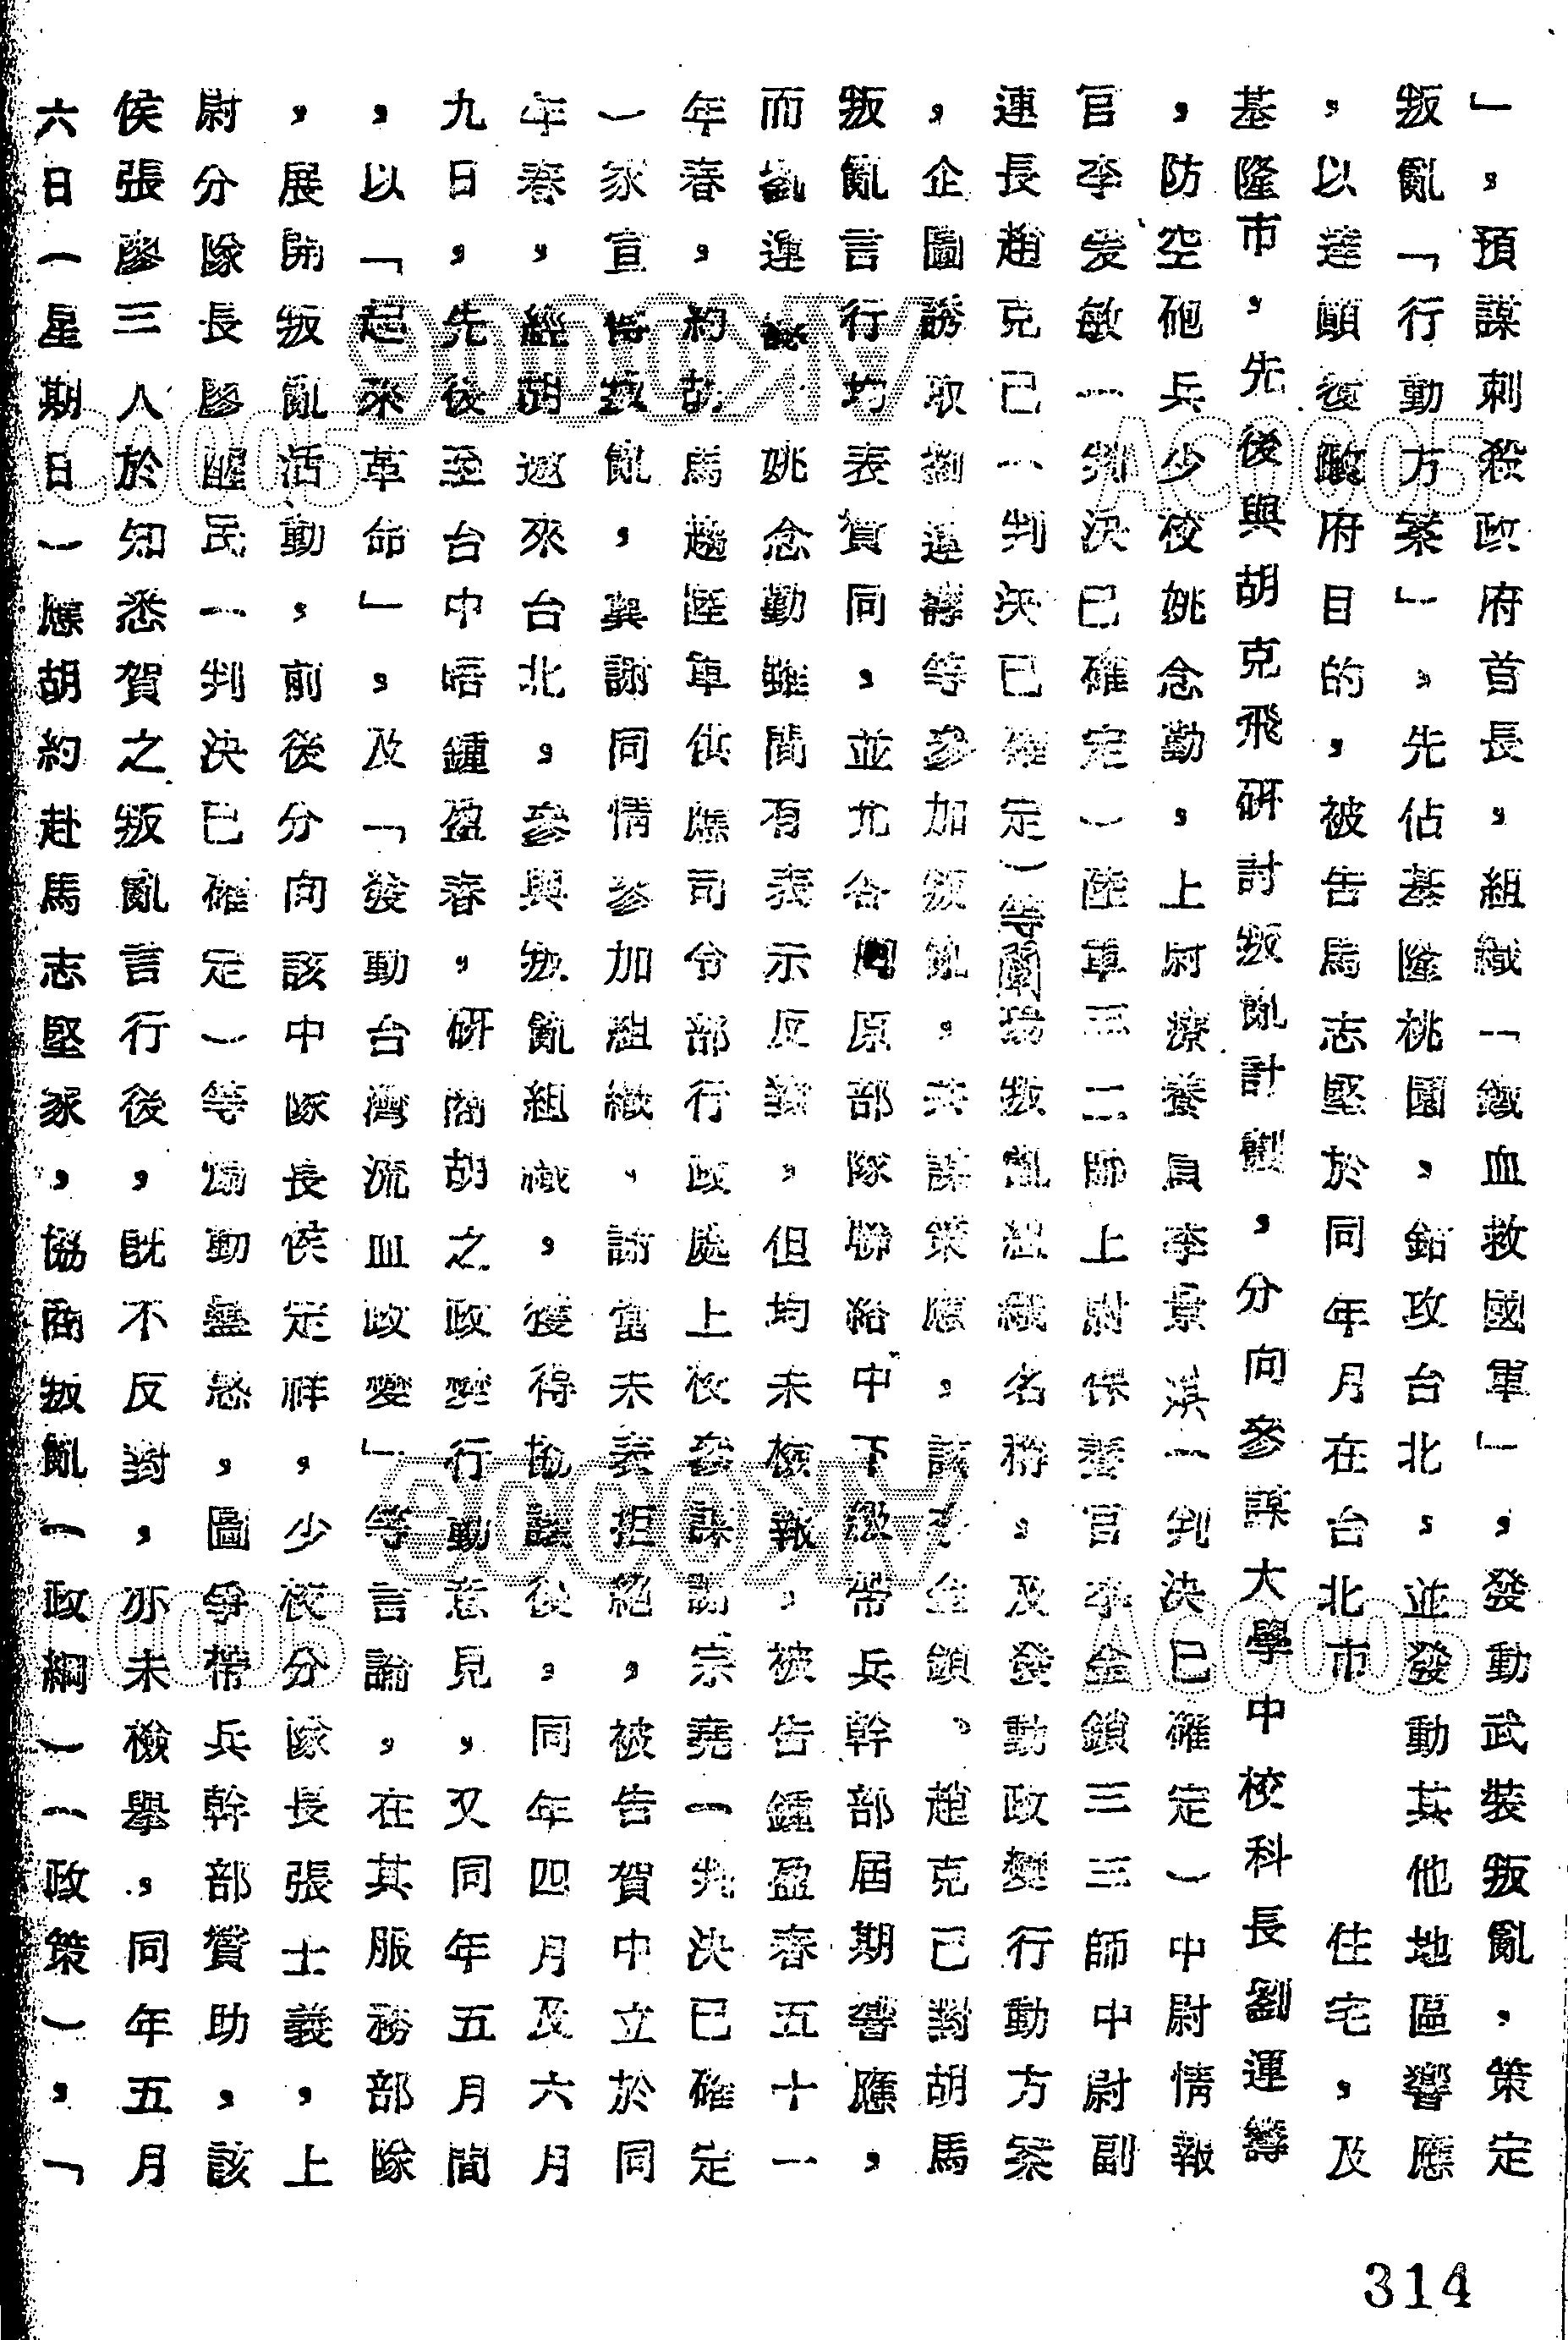 」，預謀刺殺政府首長，組織「鐵血救國軍」，發動武裝叛亂，策定
叛亂「行動方案」，先佔基隆桃園，鉗攻台北，並發動其他地區響應
，以達顛覆政府目的，被告馬志堅於同年月在台北市　住宅，及
基隆市，先後與胡克飛研討叛亂計劃，分向參謀大學中校科長劉運籌
，防空砲兵少校姚念勤，上尉療養員李景淇（判決已確定）中尉情報
官李发敏（判決已確定）陸軍三二師上尉保養官李金鎖三三師中尉副
連長趙克己（判決已確定）等闡揚叛亂組織名稱。及發動政變行動方案
，企圖誘取劉運籌等參加叛亂，共謀策應，該李金鎖、趙克己對胡馬
叛亂言行均表賀同，並允各回原部隊聯絡中下級帶兵幹部屆期響應，
而劉運籌姚念勤雖間有表示反對，但均未檢報，被告鍾盈春五十一
年春，約胡馬趙陸軍供應司令部行政處上校參謀謝宗堯（判決已確定
（家宣傳叛亂，與謝同情參加組織、謝當未表拒絕，被告賀中立於同
年春，經胡邀來台北，參與叛亂組織，獲得協議後，同年四月及六月
九日，先後至台中晤鍾盈春，研商胡之政變行動意見，，又同年五月間
，以「起來革命」。及「發動台灣流血政變」等言論，在其服務部隊
，展開叛亂活動，前後分向該中隊長侯定祥，少校分隊長張士義，上
尉分隊長廖醒民（判決已確定）等煽動蠱惑，圖爭帶兵幹部贊助，該
侯張廖三人於知悉賀之叛亂言行後，既不反對，亦未檢舉，同年五月
六日（星期日）應胡約赴馬志堅家，協商叛亂（政綱）（政策），「
314
AK0006
AC0005
AC0005
AK0006
AC0005
AC0005